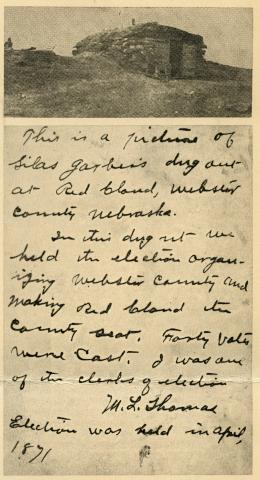 This is a picture of
Silas Garber's dug out
at Red Cloud, Webster
County Nebraska.
In this dug out we
held the election organ-
izing Webster County and
making Red Cloud the
County seat. Forty votes
were cast. I was one
of the clerks of election
M. L. Thomas
Election was held in april,
1871